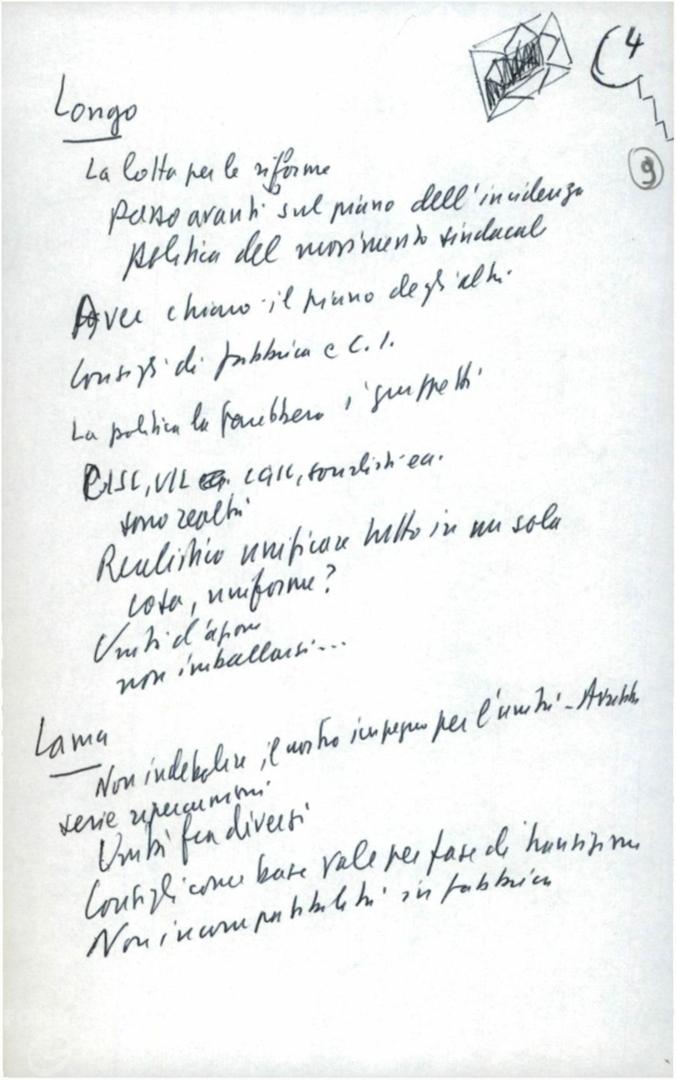 4
9
Longo
La lotta per le riforme
passo avanti sul piano dell'incidenza
politica del movimento sindacal
Aver chiaro il piano degli altri
Consigli di fabbrica e C.I.
La politica la farebbero i gruppetti
CISL, UIL CGIL, socialisti ecc.
sono realtà
Realistico unificare tutto in una sola
cosa, uniforme?
Unità d'azione
non imballarsi...
Lama
Non indebolire il nostro impegno per l'unità - Avrebbe
serie ripercussioni
Unità fra diversi
Consigli come base vale per fase di transizione
Non incompatibilità in fabbrica